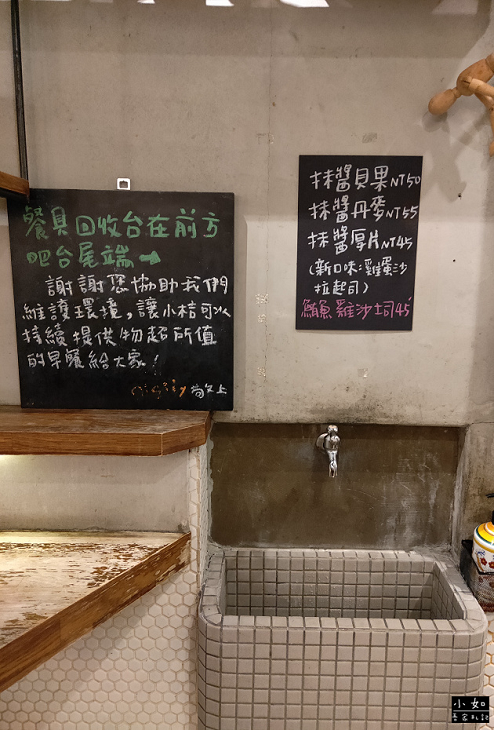 餐具回收台在前方
吧台尾端→
謝謝您協助我們
維護環境,讓小桔可以
持續提供物超所值
的早餐給大家!
敬上
抹醬貝果NT50
抹醬丹麥NT55
抹醬厚片NT45
(新口味:雞蛋沙
拉起司)
鮪魚雞沙士司45
小如